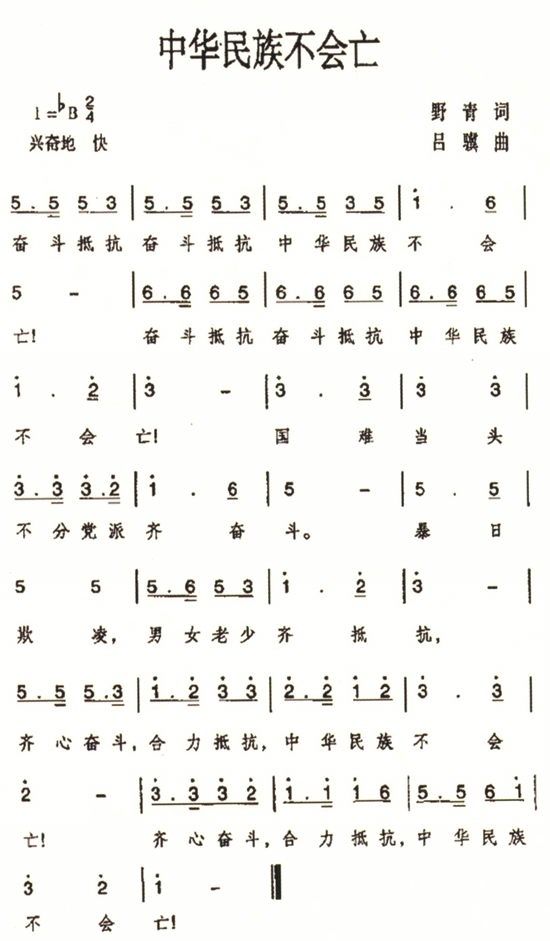 中华民族不会亡
1=♭B 2/4 野青词
兴奋地 快 吕骥曲
5.5 5 3 | 5.5 5 3 | 5.5 3 5 | i . 6 |
奋斗抵抗 奋斗抵抗 中华民族 不会
5 - | 6.6 6 5 | 6.6 6 5 | 6.6 6 5 |
亡! 奋斗抵抗 奋斗抵抗 中华民族
i . 2̇ | 3̇ - | 3̇ . 3̇ | 3̇ 3̇ |
不会 亡! 国难 当头
3̇.3̇ 3̇.2̇ | i . 6 | 5 - | 5 . 5 |
不分党派 齐奋 斗。 暴日
5 5 | 5.6 5 3 | i . 2̇ | 3̇ - |
欺凌, 男女老少 齐抵 抗,
5.5 5.3 | i.2̇ 3̇ 3̇ | 2̇.2̇ i 2̇ | 3̇ . 3̇ |
齐心奋斗, 合力抵抗, 中华民族 不会
2̇ - | 3̇.3̇ 3̇ 2̇ | i.i i 6 | 5.5 6 i |
亡! 齐心奋斗, 合力抵抗, 中华民族
3̇ 2̇ | i - ‖
不会 亡!